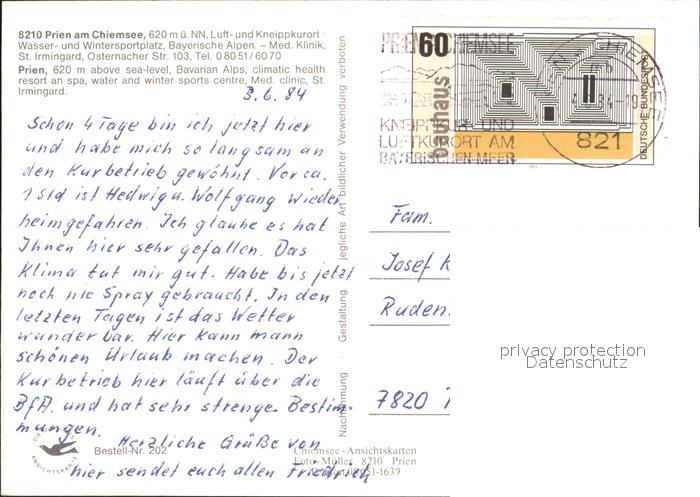 8210 Prien am Chiemsee, 620 m ü. NN, Luft- und Kneippkurort ·
Wasser- und Wintersportplatz, Bayerische Alpen. – Med. Klinik,
St. Irmingard, Osternacher Str. 103, Tel. 0 80 51 / 60 70
Prien, 620 m above sea-level, Bavarian Alps, climatic health
resort an spa, water and winter sports centre, Med. clinic, St.
Irmingard.
3. 6. 84
Schon 4 Tage bin ich jetzt hier
und habe mich so langsam an
den Kurbetrieb gewöhnt. Vor ca.
1 Std ist Hedwig u. Wolfgang wieder
heimgefahren. Ich glaube es hat
Ihnen hier sehr gefallen. Das
Klima tut mir gut. Habe bis jetzt
noch nie Spray gebraucht. In den
letzten Tagen ist das Wetter
wunderbar. Hier kann mann
schönen Urlaub machen. Der
Kurbetrieb hier läuft über die
BfA. und hat sehr strenge Bestim-
mungen.
Herzliche Grüße von
hier sendet euch allen Friedrich
Bestell-Nr. 202
ANSICHTSKARTE
Nachahmung · Gestaltung · jegliche Art bildlicher Verwendung verboten
Chiemsee-Ansichtskarten
Foto-Müller 8210 Prien
08051-1639
PRIEN CHIEMSEE
KNEIPP- UND
LUFTKURORT AM
BAYERISCHEN MEER
60
bauhaus
DEUTSCHE BUNDESPOST
821
Fam.
Josef K
Ruden
7820
privacy protection
Datenschutz